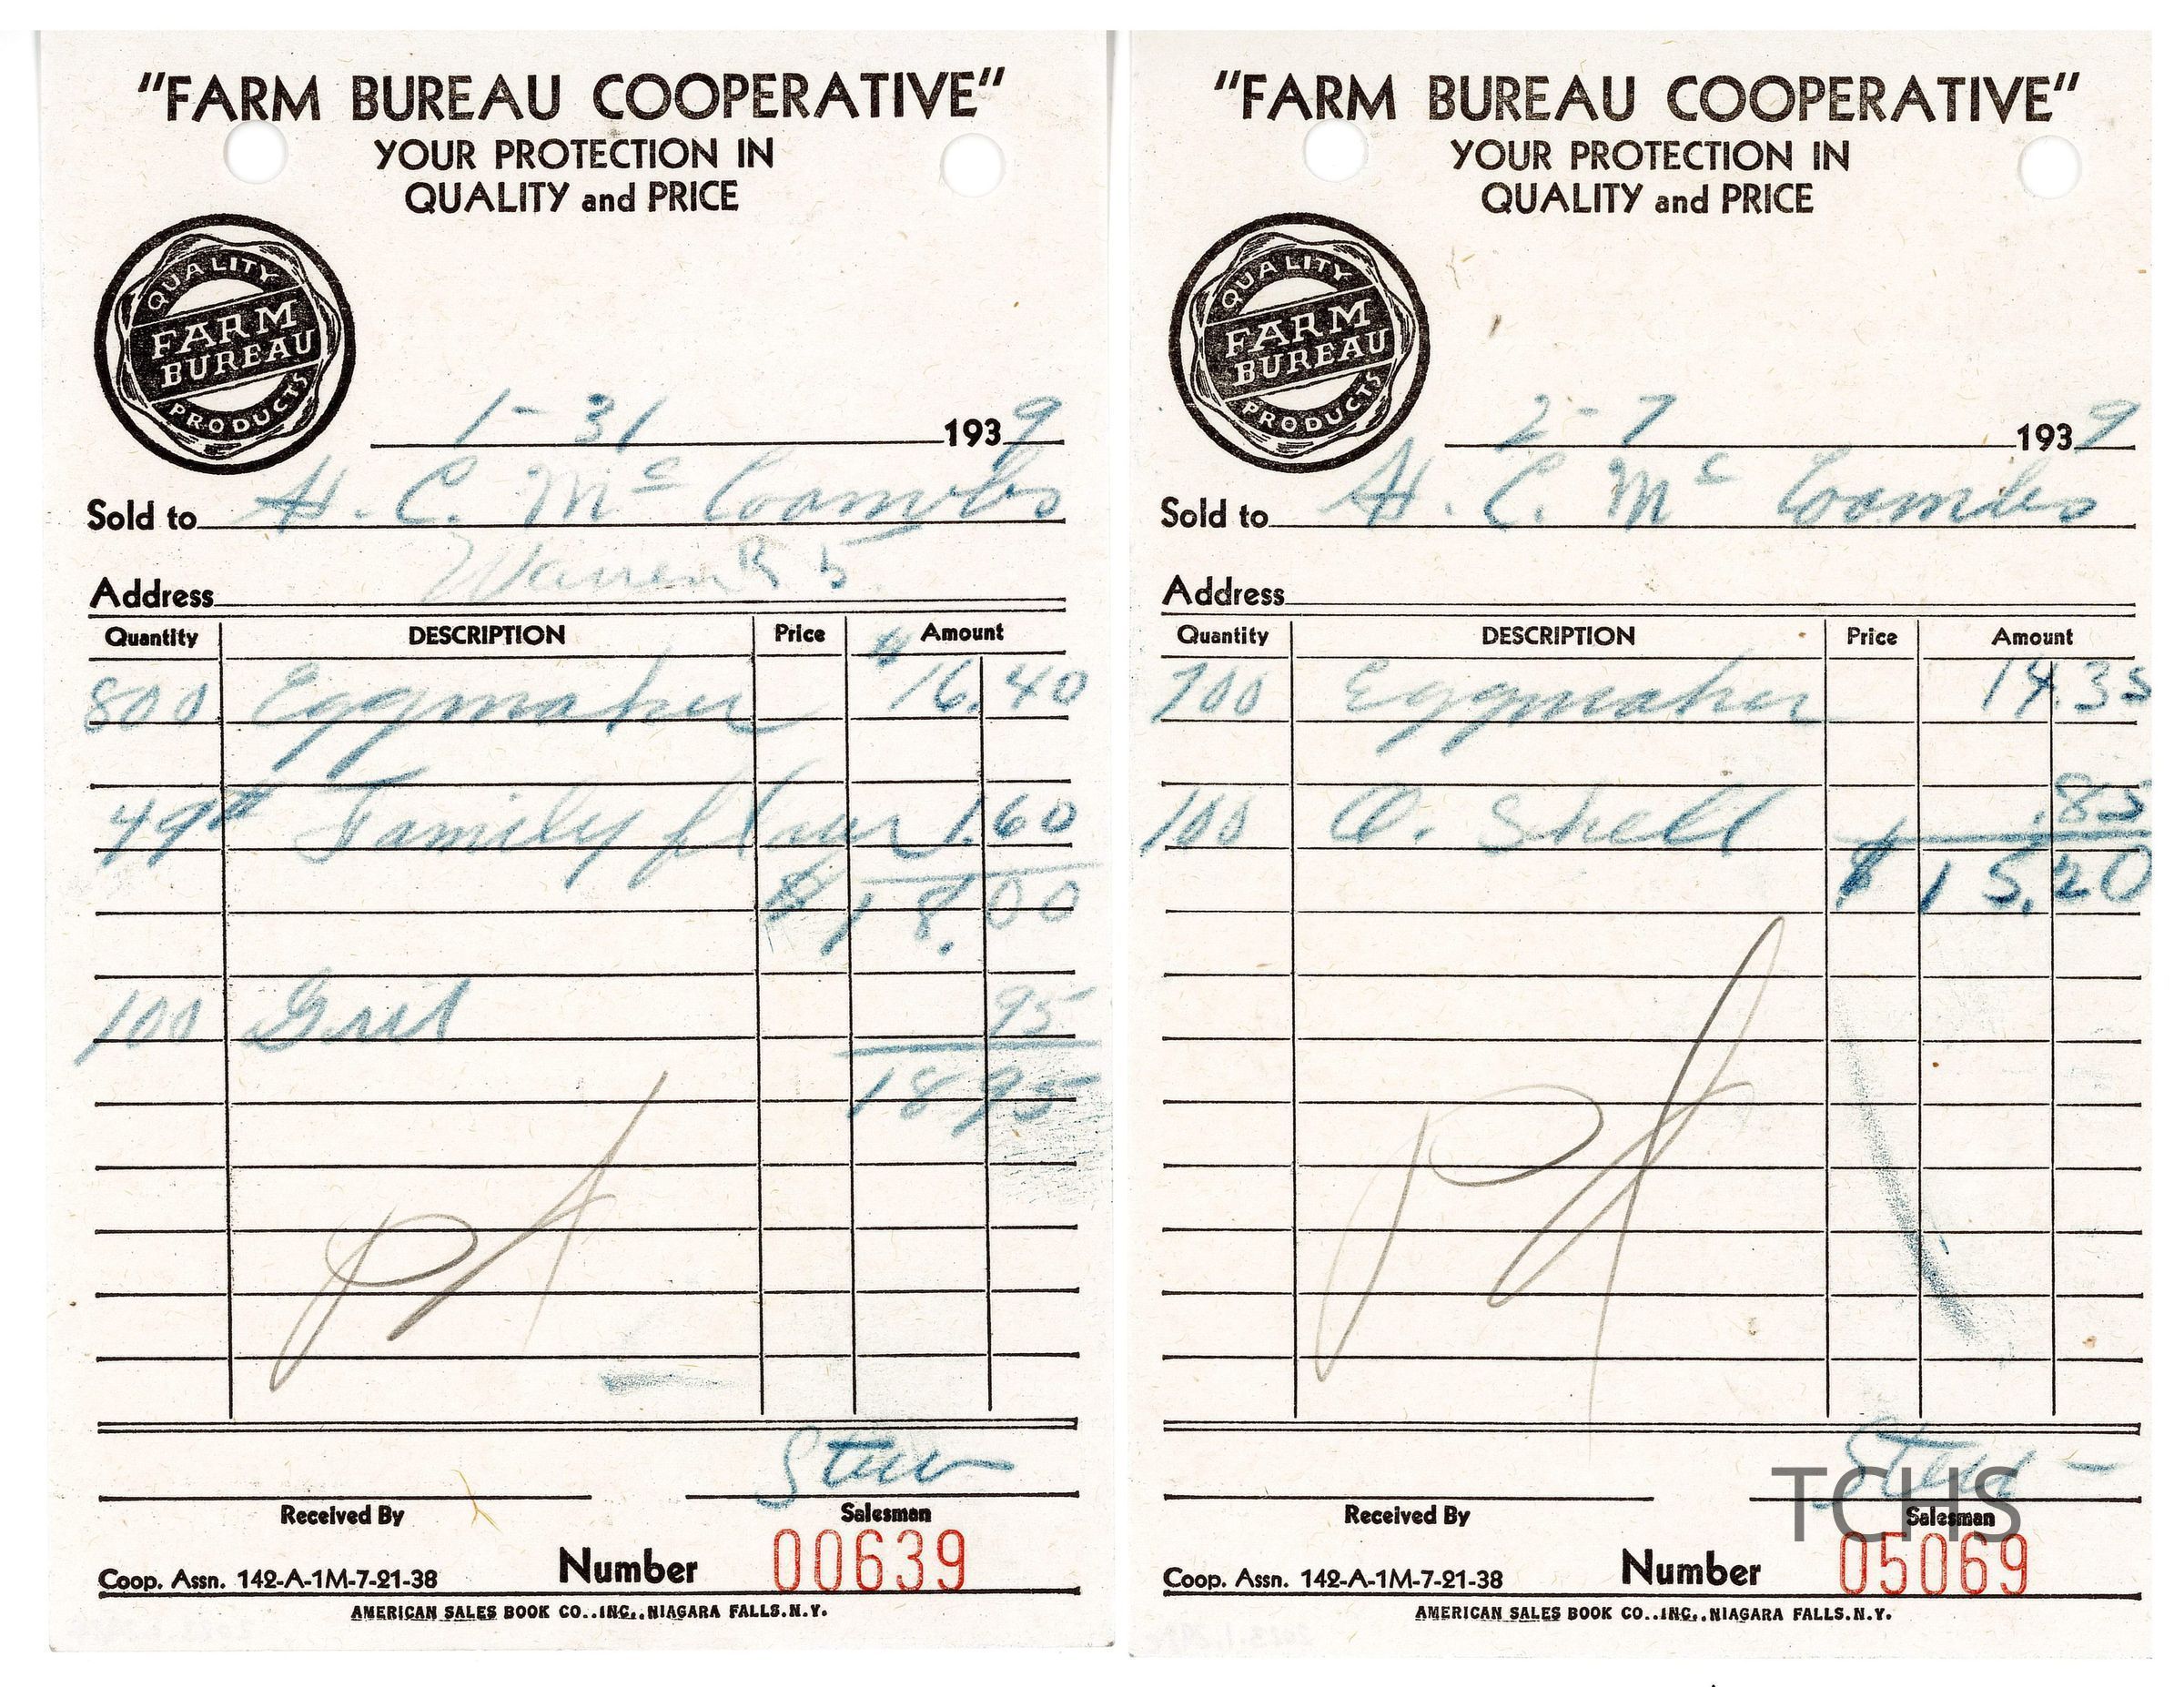 "FARM BUREAU COOPERATIVE"
YOUR PROTECTION IN
QUALITY and PRICE
QUALITY
FARM
BUREAU
PRODUCTS
1-31 1939
Sold to H. C. Mc Coombs
Warren R 5
Address
Quantity DESCRIPTION Price Amount
800 Eggmaker $16.40
49# Family flour 1.60
$18.00
100 Grit 95
18 95
Received By Salesman
Number 00639
Coop. Assn. 142-A-1M-7-21-38
AMERICAN SALES BOOK CO., INC., NIAGARA FALLS, N.Y.
"FARM BUREAU COOPERATIVE"
YOUR PROTECTION IN
QUALITY and PRICE
QUALITY
FARM
BUREAU
PRODUCTS
2-7 1939
Sold to H. C. Mc Coombs
Address
Quantity DESCRIPTION Price Amount
700 Eggmaker 14.35
100 O. Shell .85
$15.20
TCHS
Received By Salesman
Number 05069
Coop. Assn. 142-A-1M-7-21-38
AMERICAN SALES BOOK CO., INC., NIAGARA FALLS, N.Y.